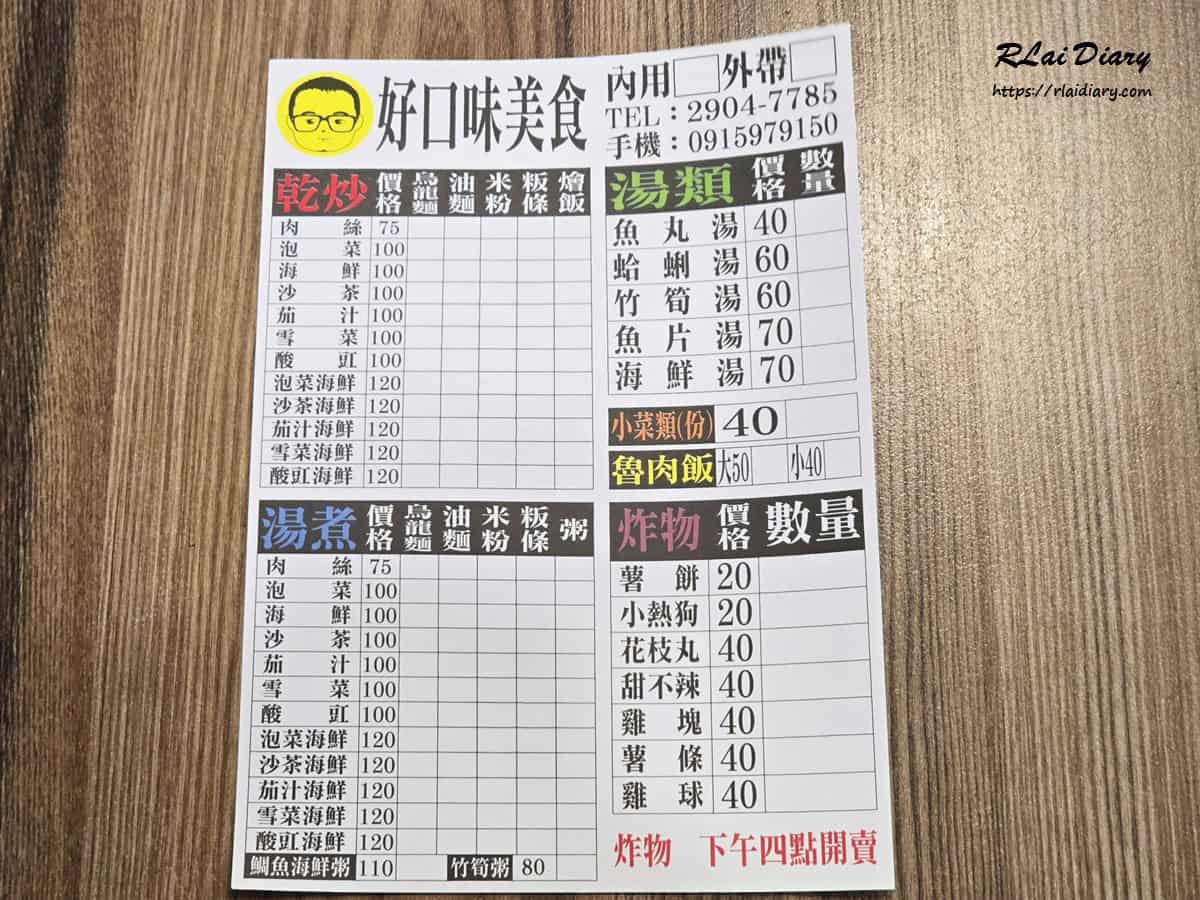 RLai Diary
https://rlaidiary.com
好口味美食
內用 外帶
TEL：2904-7785
手機：0915979150
乾炒 價格 烏龍麵 油麵 米粉 粄條 燴飯
肉絲 75
泡菜 100
海鮮 100
沙茶 100
茄汁 100
雪菜 100
酸豇 100
泡菜海鮮 120
沙茶海鮮 120
茄汁海鮮 120
雪菜海鮮 120
酸豇海鮮 120
湯煮 價格 烏龍麵 油麵 米粉 粄條 粥
肉絲 75
泡菜 100
海鮮 100
沙茶 100
茄汁 100
雪菜 100
酸豇 100
泡菜海鮮 120
沙茶海鮮 120
茄汁海鮮 120
雪菜海鮮 120
酸豇海鮮 120
鯛魚海鮮粥 110 竹筍粥 80
湯類 價格 數量
魚丸湯 40
蛤蜊湯 60
竹筍湯 60
魚片湯 70
海鮮湯 70
小菜類(份) 40
魯肉飯 大50 小40
炸物 價格 數量
薯餅 20
小熱狗 20
花枝丸 40
甜不辣 40
雞塊 40
薯條 40
雞球 40
炸物 下午四點開賣